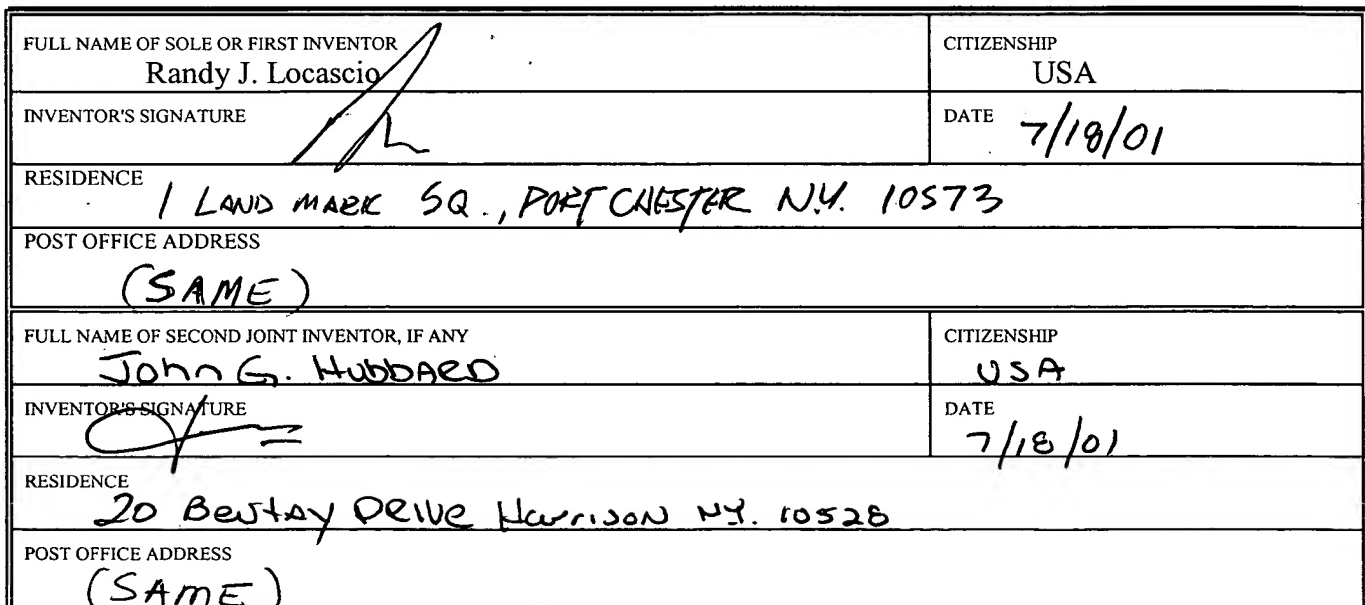 FULL NAME OF SOLE OR FIRST INVENTOR
Randy J. Locascio
CITIZENSHIP
USA
INVENTOR'S SIGNATURE
DATE 7/18/01
RESIDENCE
1 LAND MARK SQ., PORT CHESTER N.Y. 10573
POST OFFICE ADDRESS
(SAME)
FULL NAME OF SECOND JOINT INVENTOR, IF ANY
John G. HubbARD
CITIZENSHIP
USA
INVENTOR'S SIGNATURE
DATE
7/18/01
RESIDENCE
20 DRIVE HarrisoN NY. 10528
POST OFFICE ADDRESS
(SAME)